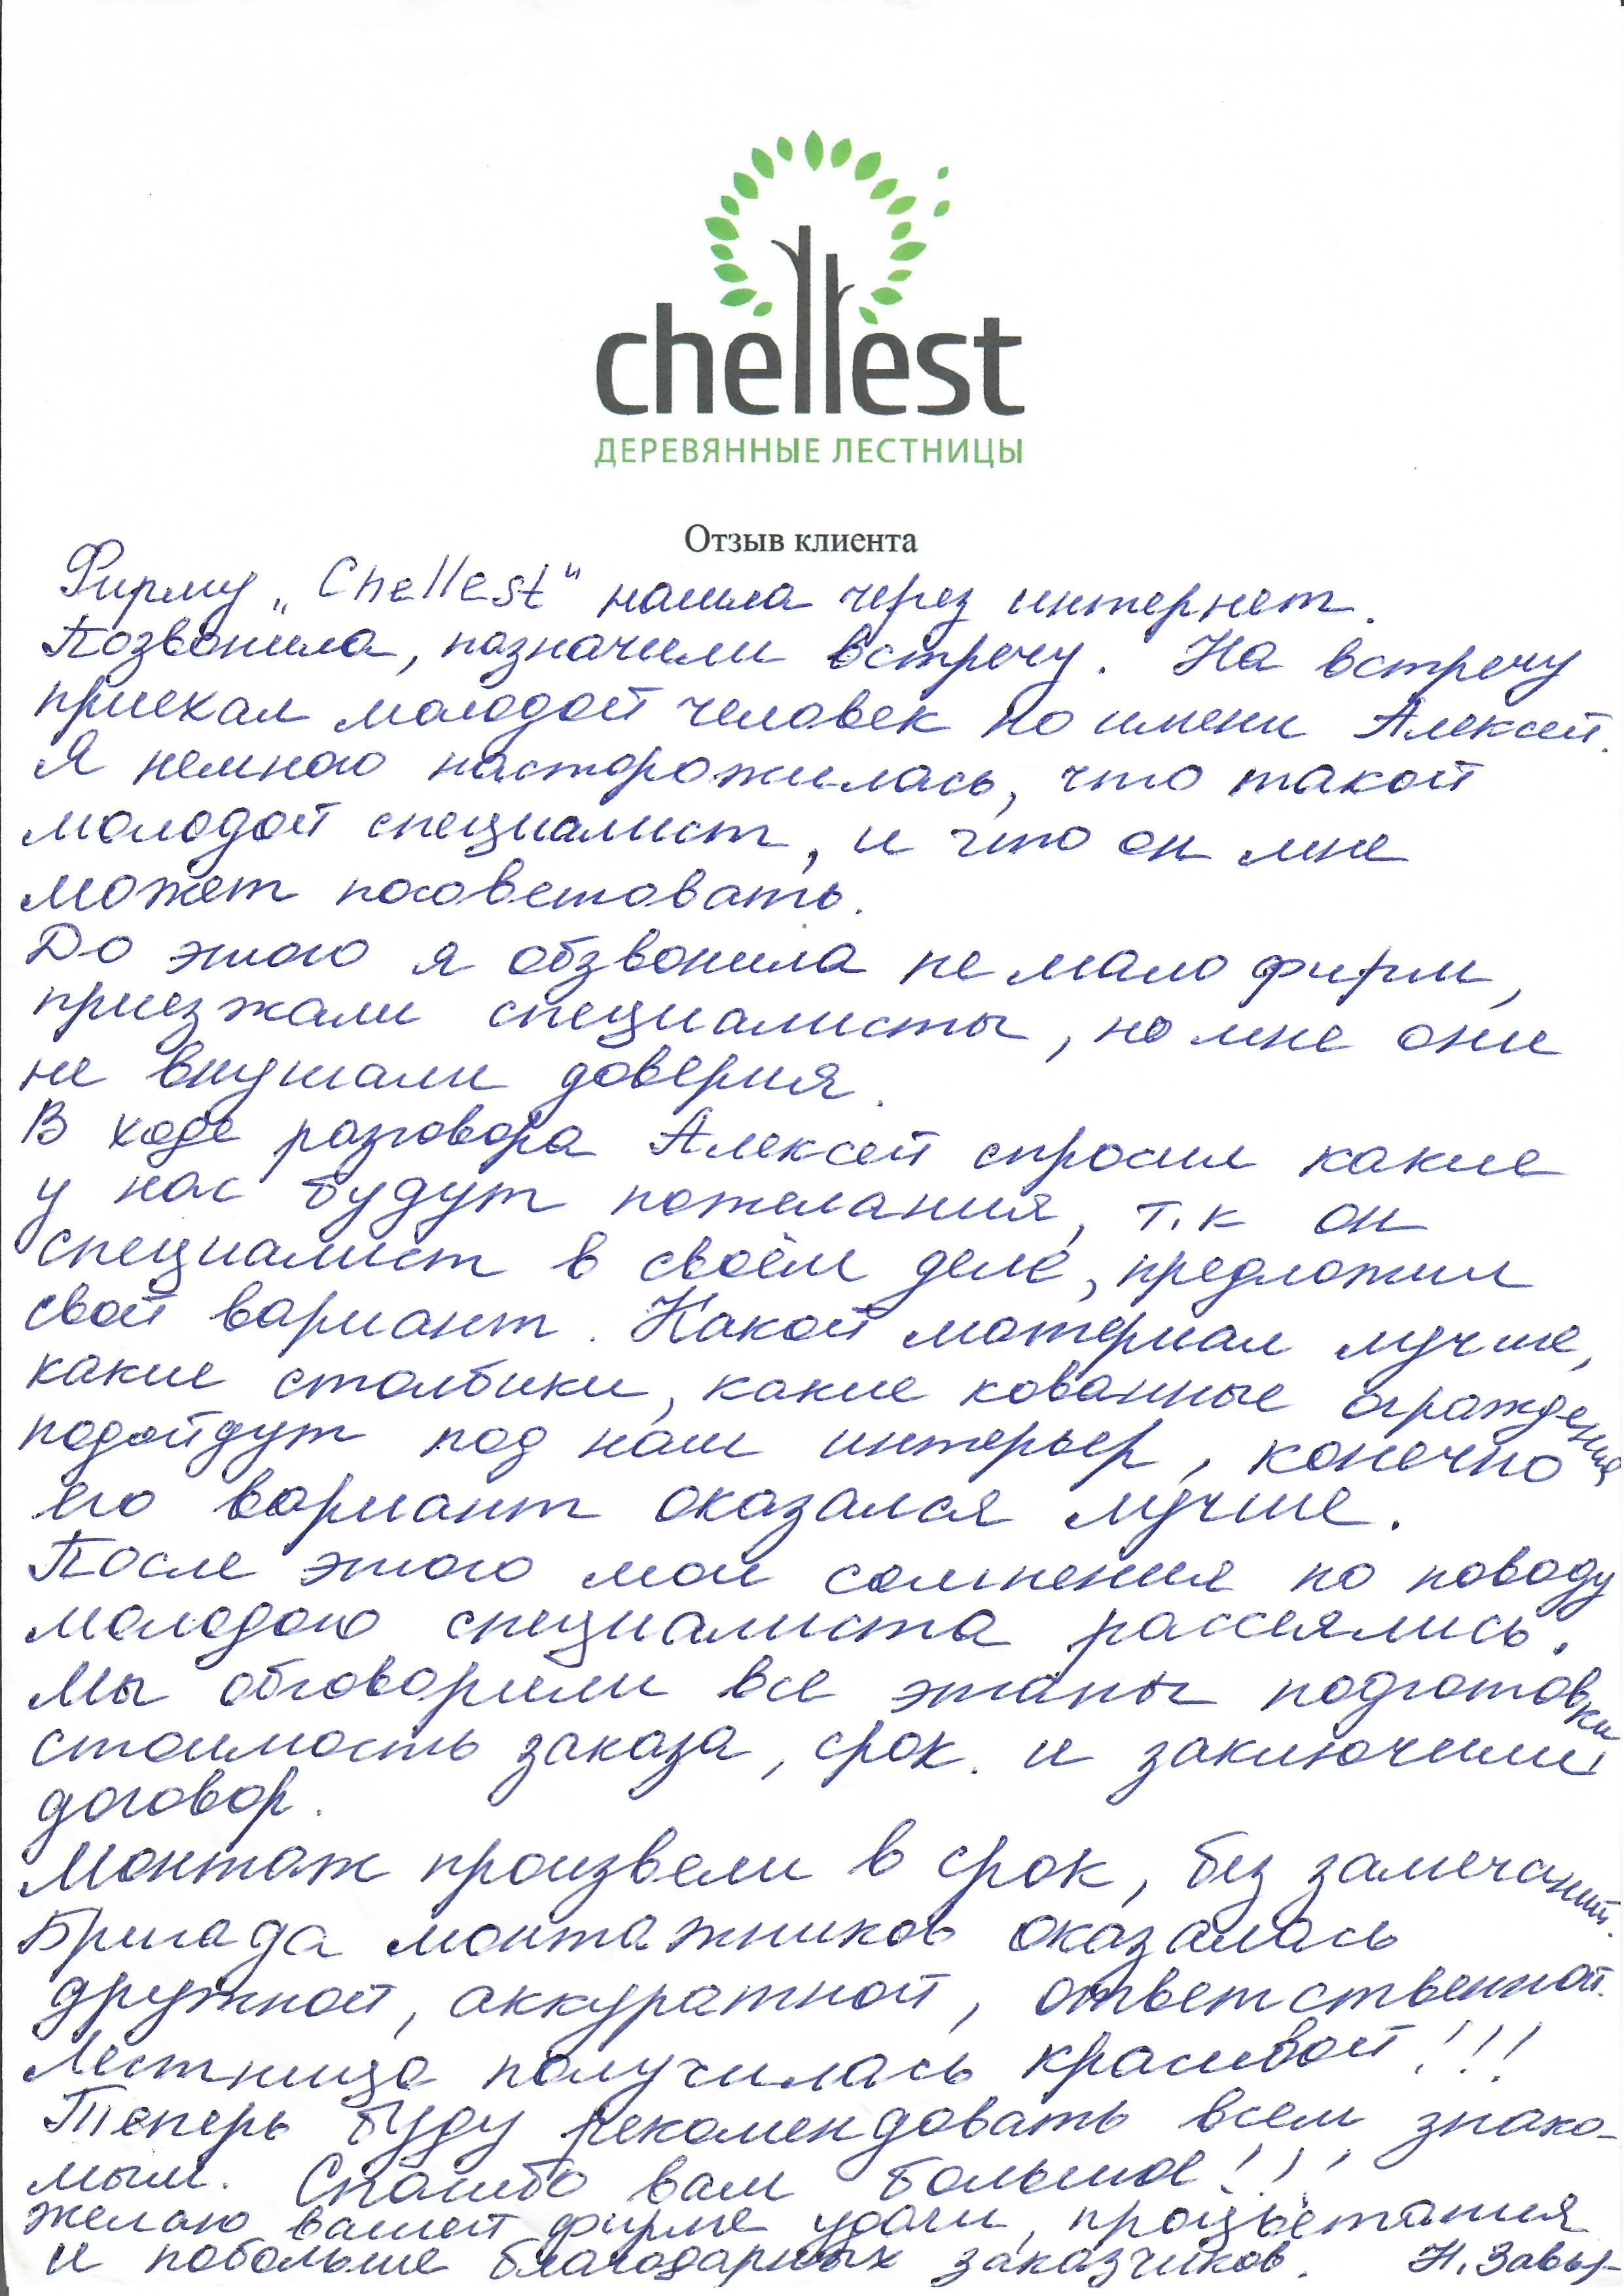 chellest
ДЕРЕВЯННЫЕ ЛЕСТНИЦЫ
Отзыв клиента
Фирму „Chellest" нашла через интернет.
Позвонила, назначили встречу. На встречу
приехал молодой человек по имени Алексей.
Я немного насторожилась, что такой
молодой специалист, и что он мне
может посоветовать.
До этого я обзвонила не мало фирм,
приезжали специалисты, но мне они
не внушали доверия.
В ходе разговора Алексей спросил какие
у нас будут пожелания, т.к он
специалист в своём деле, предложил
свой вариант. Какой материал лучше,
какие столбики, какие кованные ограждения
подойдут под наш интерьер, конечно
его вариант оказался лучше.
После этого мои сомнения по поводу
молодого специалиста рассеялись.
Мы обговорили все этапы подготовки
стоимость заказа, срок. и заключили
договор.
Монтаж произвели в срок, без замечаний.
Бригада монтажников оказалась
дружной, аккуратной, ответственной.
Лестница получилась красивой!!!
Теперь буду рекомендовать всем знако-
мым. Спасибо вам большое!!!
желаю вашей фирме удачи, процветания
и побольше благодарных заказчиков. Н.